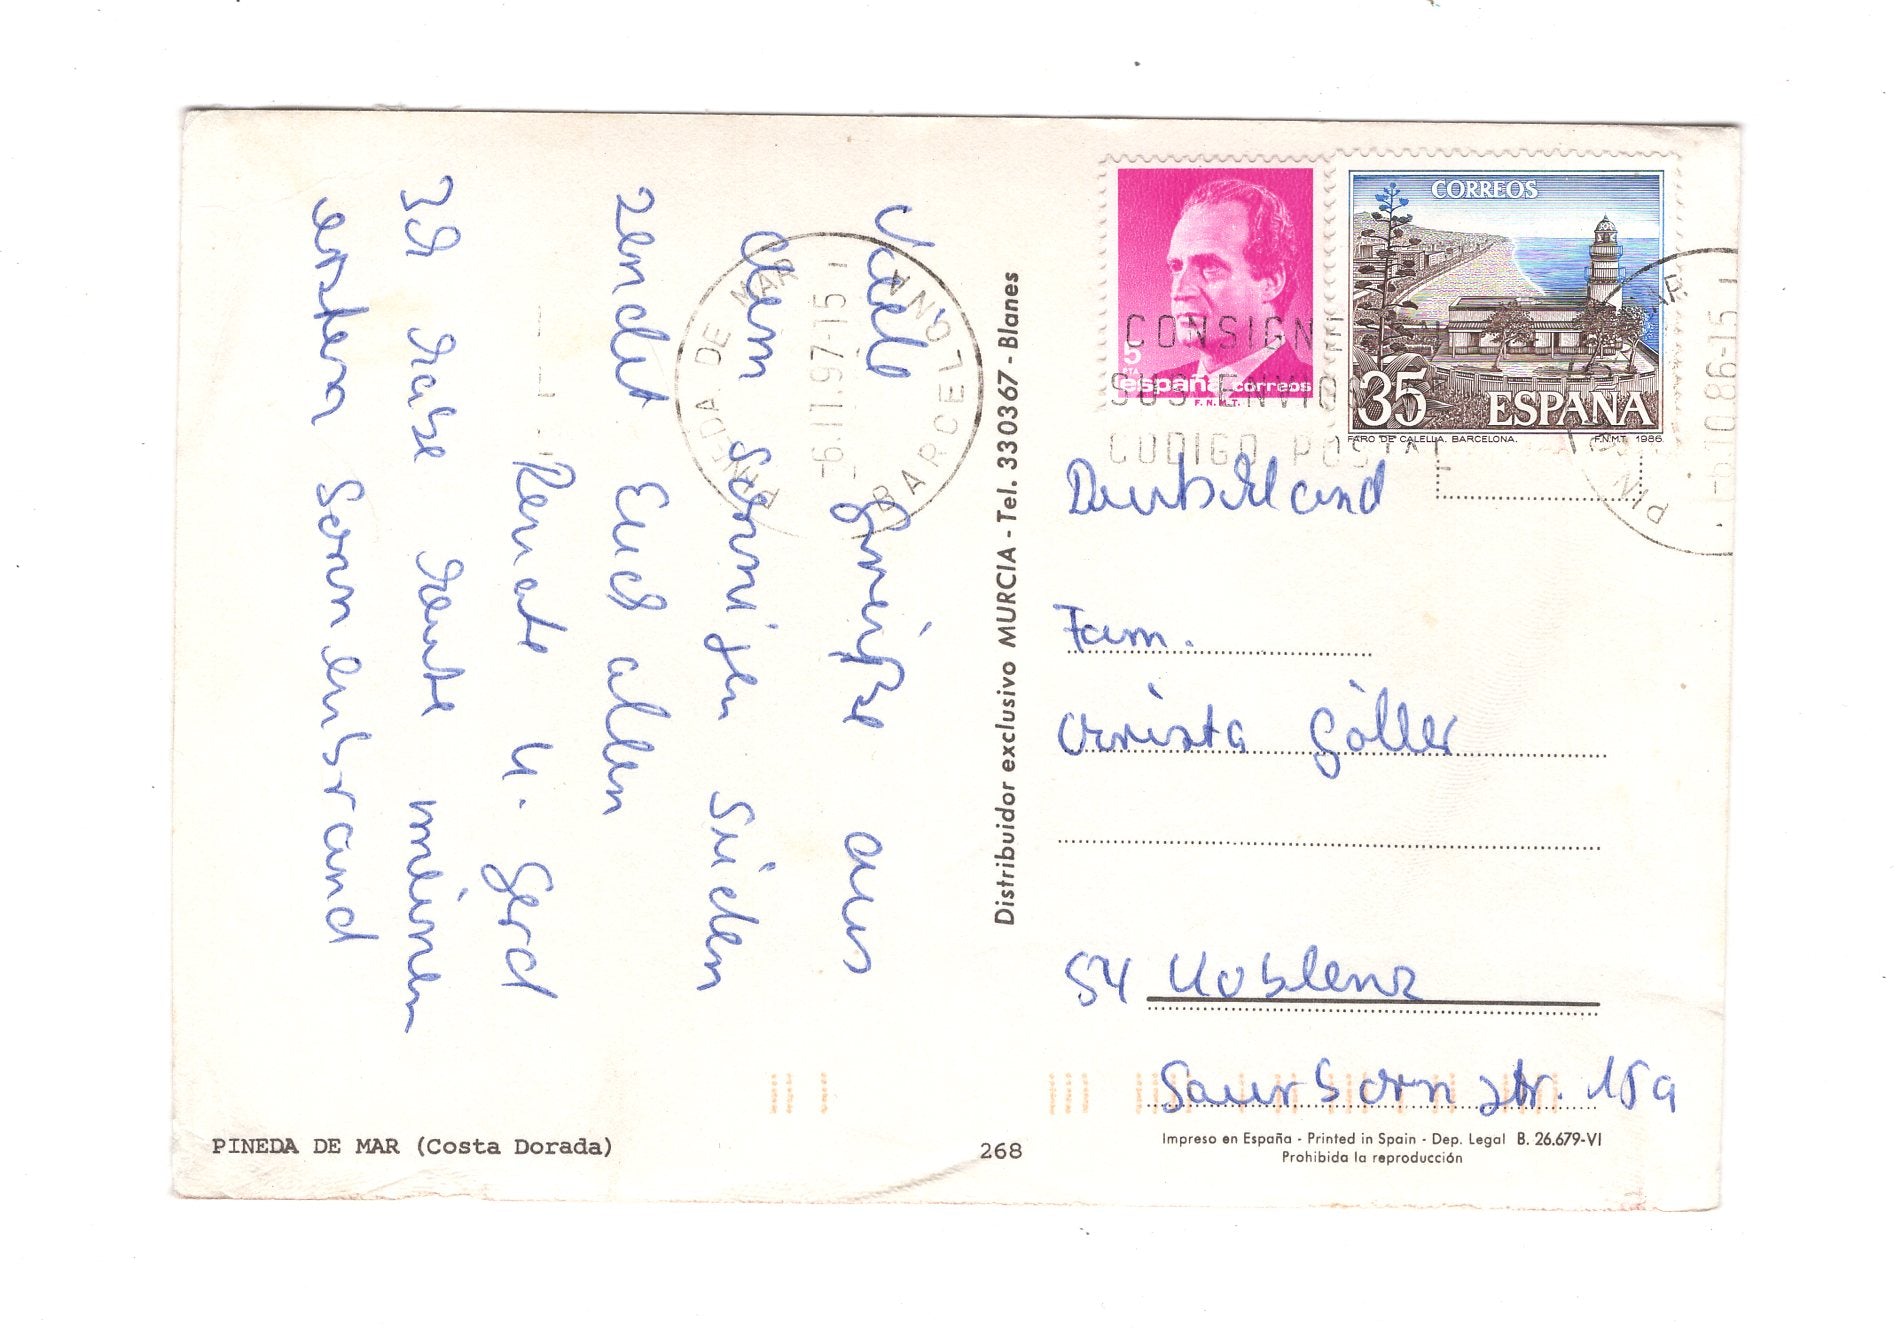 Viele Grüße aus
dem sonnigen Süden
sendet Euch allen
Renate u. Gerd
Ich habe heute meinen
ersten Sonnenbrand
PINEDA DE MAR
BARCELONA
-6.11.97-15
Distribuidor exclusivo MURCIA - Tel. 330367 - Blanes
5
PTA
españa correos
F.N.M.T.
CORREOS
35 ESPAÑA
FARO DE CALELLA. BARCELONA. F.N.M.T. 1986
CONSIGN
SUS ENVIOS
CODIGO POSTAL
-6.10.86-15
Deutschland
Fam.
Christa Göller
54 Koblenz
Saurbornstr. 15a
PINEDA DE MAR (Costa Dorada)
268
Impreso en España - Printed in Spain - Dep. Legal B. 26.679-VI
Prohibida la reproducción